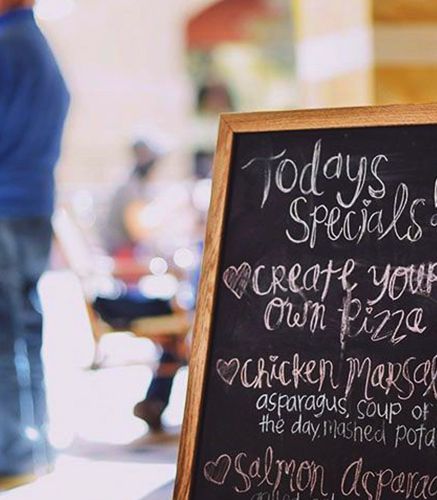 Todays
Specials!
Create your
own pizza
Chicken Marsal
asparagus, soup of
the day, mashed pota
Salmon, Asparag